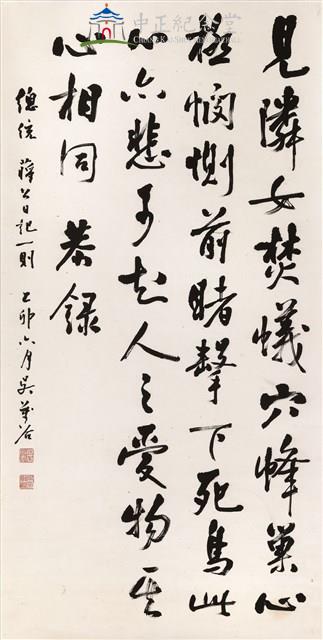 中正紀念堂
見隣女焚蟻穴蜂巢心
極憫惻前睹擊下死鳥此
心亦悲可知人之愛物其
心相同 恭錄
總統 蔣公日記一則 乙卯六月吳萬谷